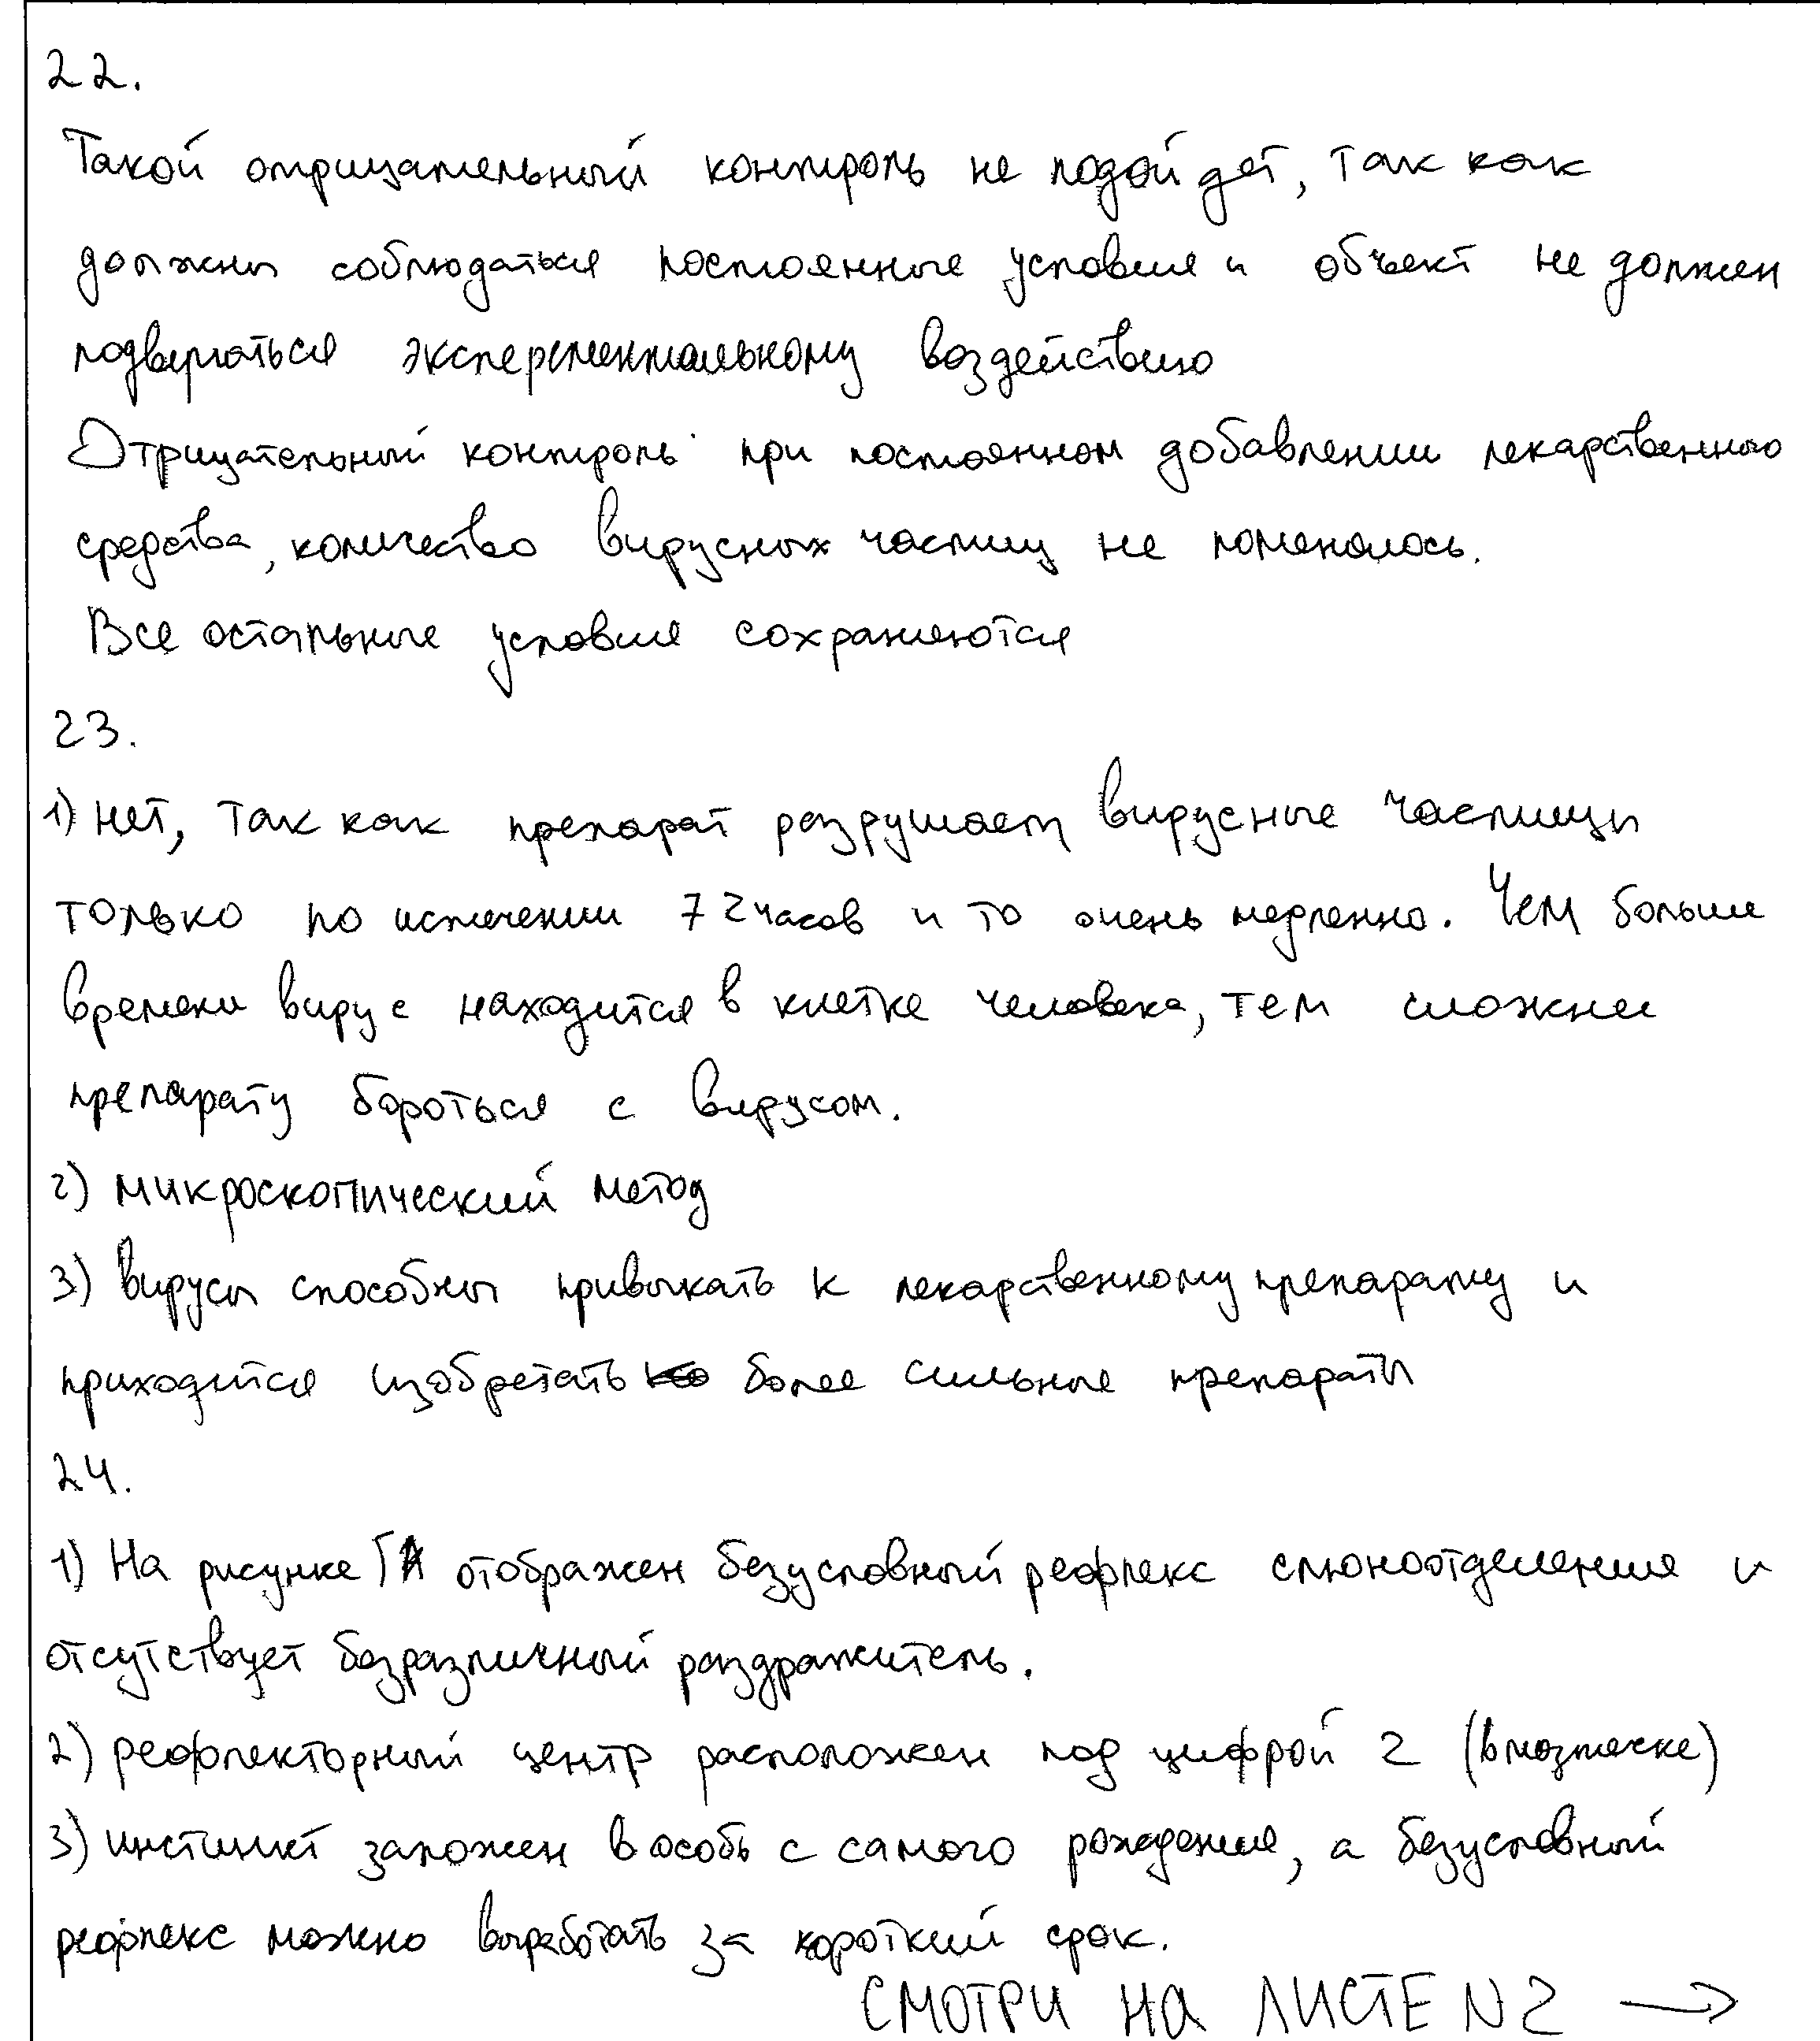 22.
Такой отрицательный контроль не подойдет, так как
должны соблюдаться постоянные условия и объект не должен
подвергаться эксперементальному воздействию
Отрицательный контроль при постоянном добавлении лекарственного
средства, количество вирусных частиц не поменялось.
Все остальные условия сохраняются
23.
1) нет, так как препарат разрушает вирусные частицы
только по истечении 72 часов и то очень медленно. Чем больше
времени вирус находится в клетке человека, тем сложнее
препарату бороться с вирусом.
2) микроскопический метод
3) вирусы способны привыкать к лекарственному препарату и
приходится изобретать более сильные препараты
24.
1) На рисунке А отображен безусловный рефлекс слюноотделения и
отсутствует безразличный раздражитель.
2) рефлекторный центр расположен под цифрой 2 (в мозжечке)
3) инстинкт заложен в особь с самого рождения, а безусловный
рефлекс можно выработать за короткий срок.
СМОТРИ НА ЛИСТЕ N2 →